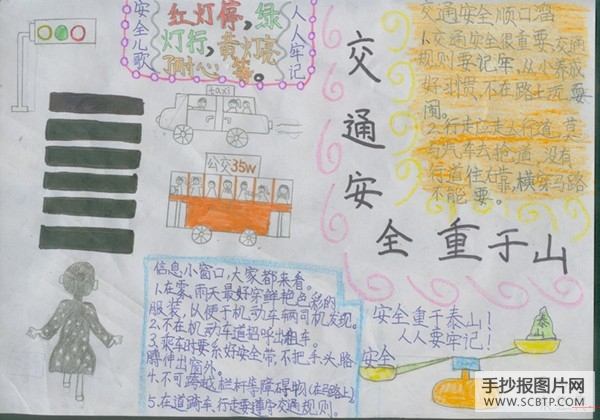 安全儿歌
红灯停,绿
灯行,黄灯亮
耐心等。
人人牢记
taxi
公交35w
交通安全重于山
交通安全顺口溜
1.交通安全很重要,交通
规则要记牢,从小养成
好习惯,不在路上玩耍
闹。
2.行走应走人行道,莫
与机车去抢道,没有
行道往右靠,横穿马路
不能要。
信息小窗口,大家都来看。
1.在雾、雨天最好穿鲜艳色彩的
服装,以便于机动车车辆司机发现。
2.不在机动车道招呼出租车。
3.乘车时要系好安全带,不把手、头、胳
膊伸出窗外。
4.不可跨越栏杆等障碍物(在马路上)
5.在道骑车,行走要遵守交通规则。
安全重于泰山!
人人要牢记!
安全
泰山
手抄报图片网
WWW.SCBTP.COM